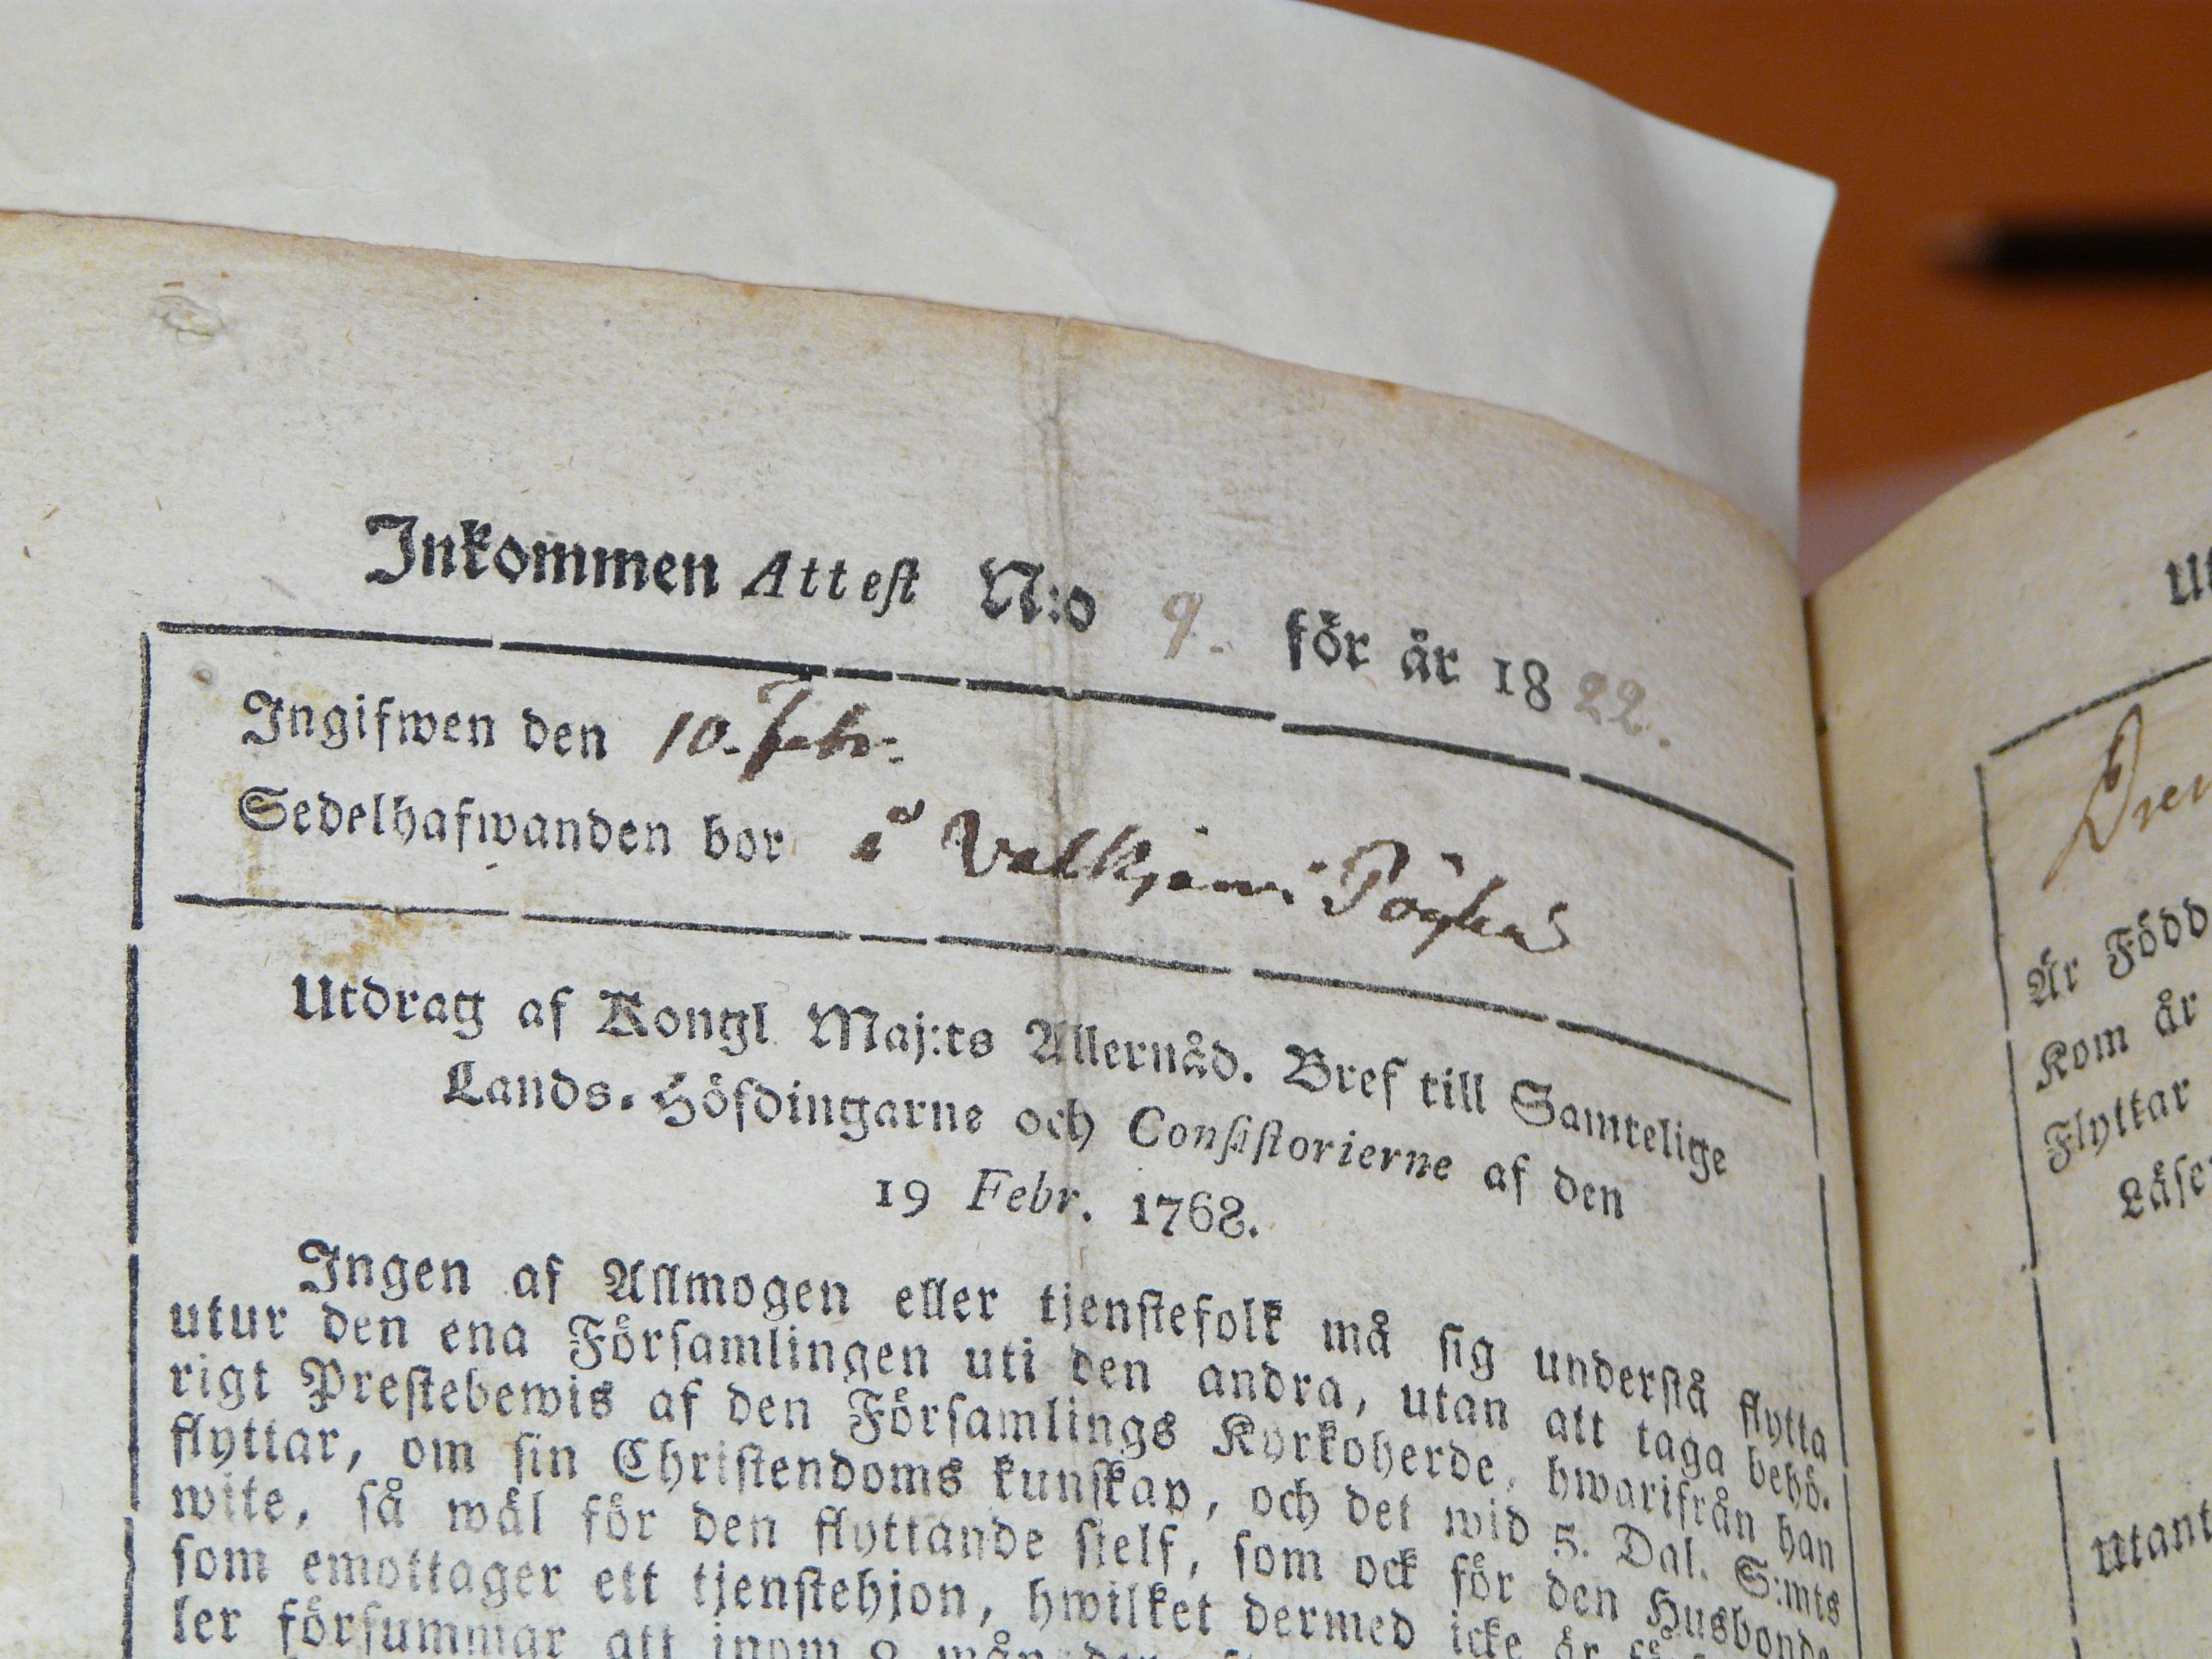 Inkommen Attest N:o 9. för år 1822.
Ingifwen den 10. Febr:
Sedelhafwanden bor å
Utdrag af Kongl Maj:ts Allernåd. Bref till Samtelige
Lands-Höfdingarne och Consistorierne af den
19 Febr. 1768.
Ingen af Allmogen eller tjenstefolk må sig understå flytta
utur den ena Församlingen uti den andra, utan att taga behö-
rigt Prestebewis af den Församlings Kyrkoherde, hwarifrån han
flyttar, om sin Christendoms kunskap, och det wid 5. Dal. S:mts
wite, så wäl för den flyttande sielf, som ock för den Husbonde
som emottager ett tjenstehjon, hwilket dermed icke är
ler försummar att inom
Är Född
Kom år
Flyttar